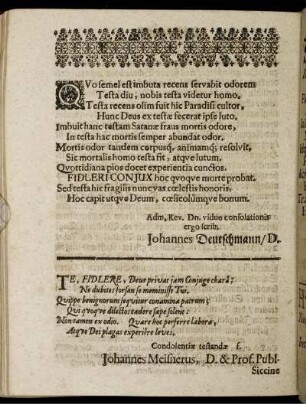 QVo semel est imbuta recens servabit odorem
Testa diu, nobis testa videtur homo,
Testa recens olim fuit hic Paradisi cultor,
Hunc Deus ex testæ fecerat ipse luto,
Imbuit hanc testam Satanæ fraus mortis odore,
In testa hac mortis semper abundat odor,
Mortis odor tandem corpusq́; animamq́; resolvit,
Sic mortalis homo testa fit, atqve lutum.
Quottidiana pios docet experientia cunctos.
FIDLERI CONJUX hoc qvoqve morte probat.
Sed testa hic fragilis nunc vas cœlestis honoris,
Hoc capit utqve Deum, cœlicolumqve bonum.
Adm. Rev. Dn. viduo consolationis
ergo scrib.
Johannes Deutschmann/ D.
TE, FIDLERE, Deus privat jam Conjuge charâ:
Ne dubites: forsan se meminisse Tui,
Quippe benignorum seqvitur conamina patrum;
Qui qvoqve dilectos tædere sæpe solent:
Non tamen ex odio. Quare hoc perferre labora,
Atqve Dei plagas experière leves.
Condolentiæ testandæ f.
Johannes Meisnerus, D. & Prof. Publ.
Siccine